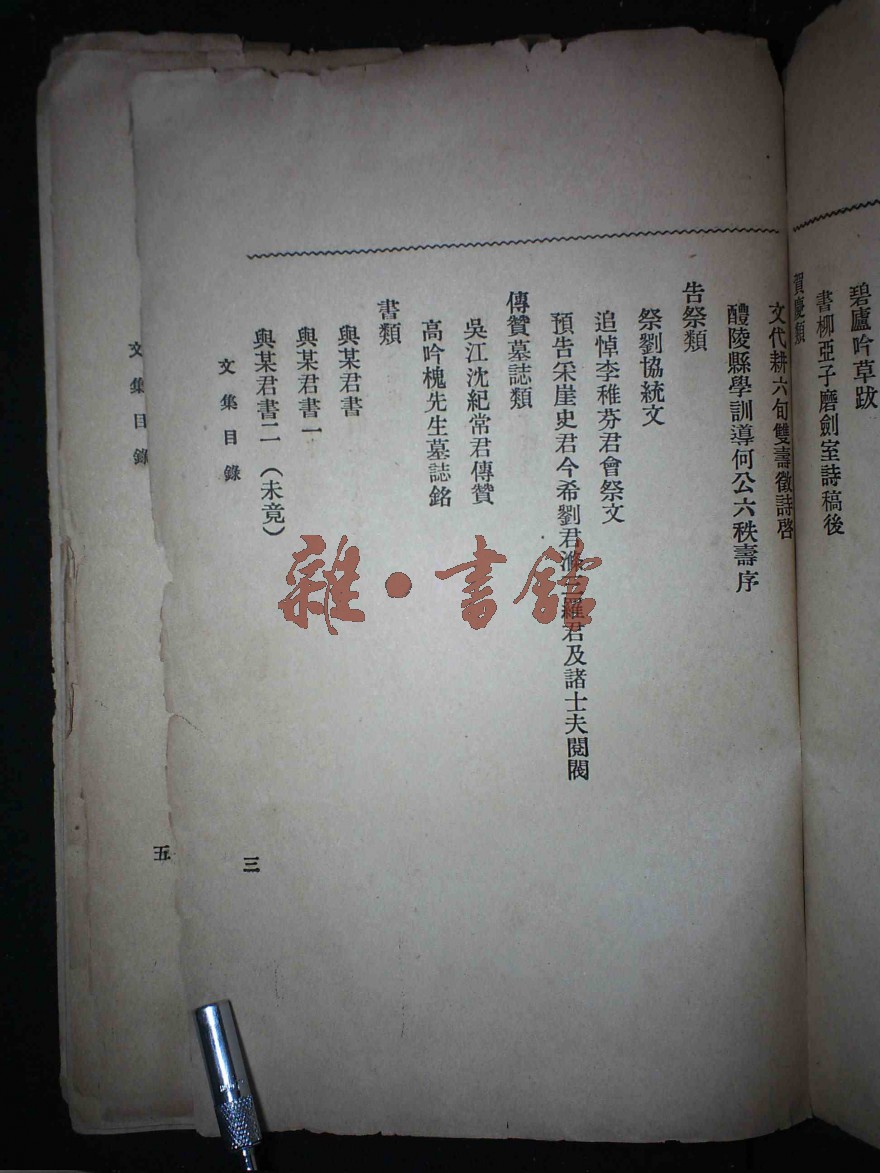 碧廬吟草跋
書柳亞子磨劍室詩稿後
賀慶類
文代耕六旬雙壽徵詩啓
醴陵縣學訓導何公六秩壽序
告祭類
祭劉協統文
追悼李稚芬君會祭文
預告宋崖史君今希劉君滌三羅君及諸士夫閱閥
傳贊墓誌類
吳江沈紀常君傳贊
高吟槐先生墓誌銘
書類
與某君書
與某君書一
與某君書二(未竟)
文集目錄
三
文集目錄
五
雜·書館